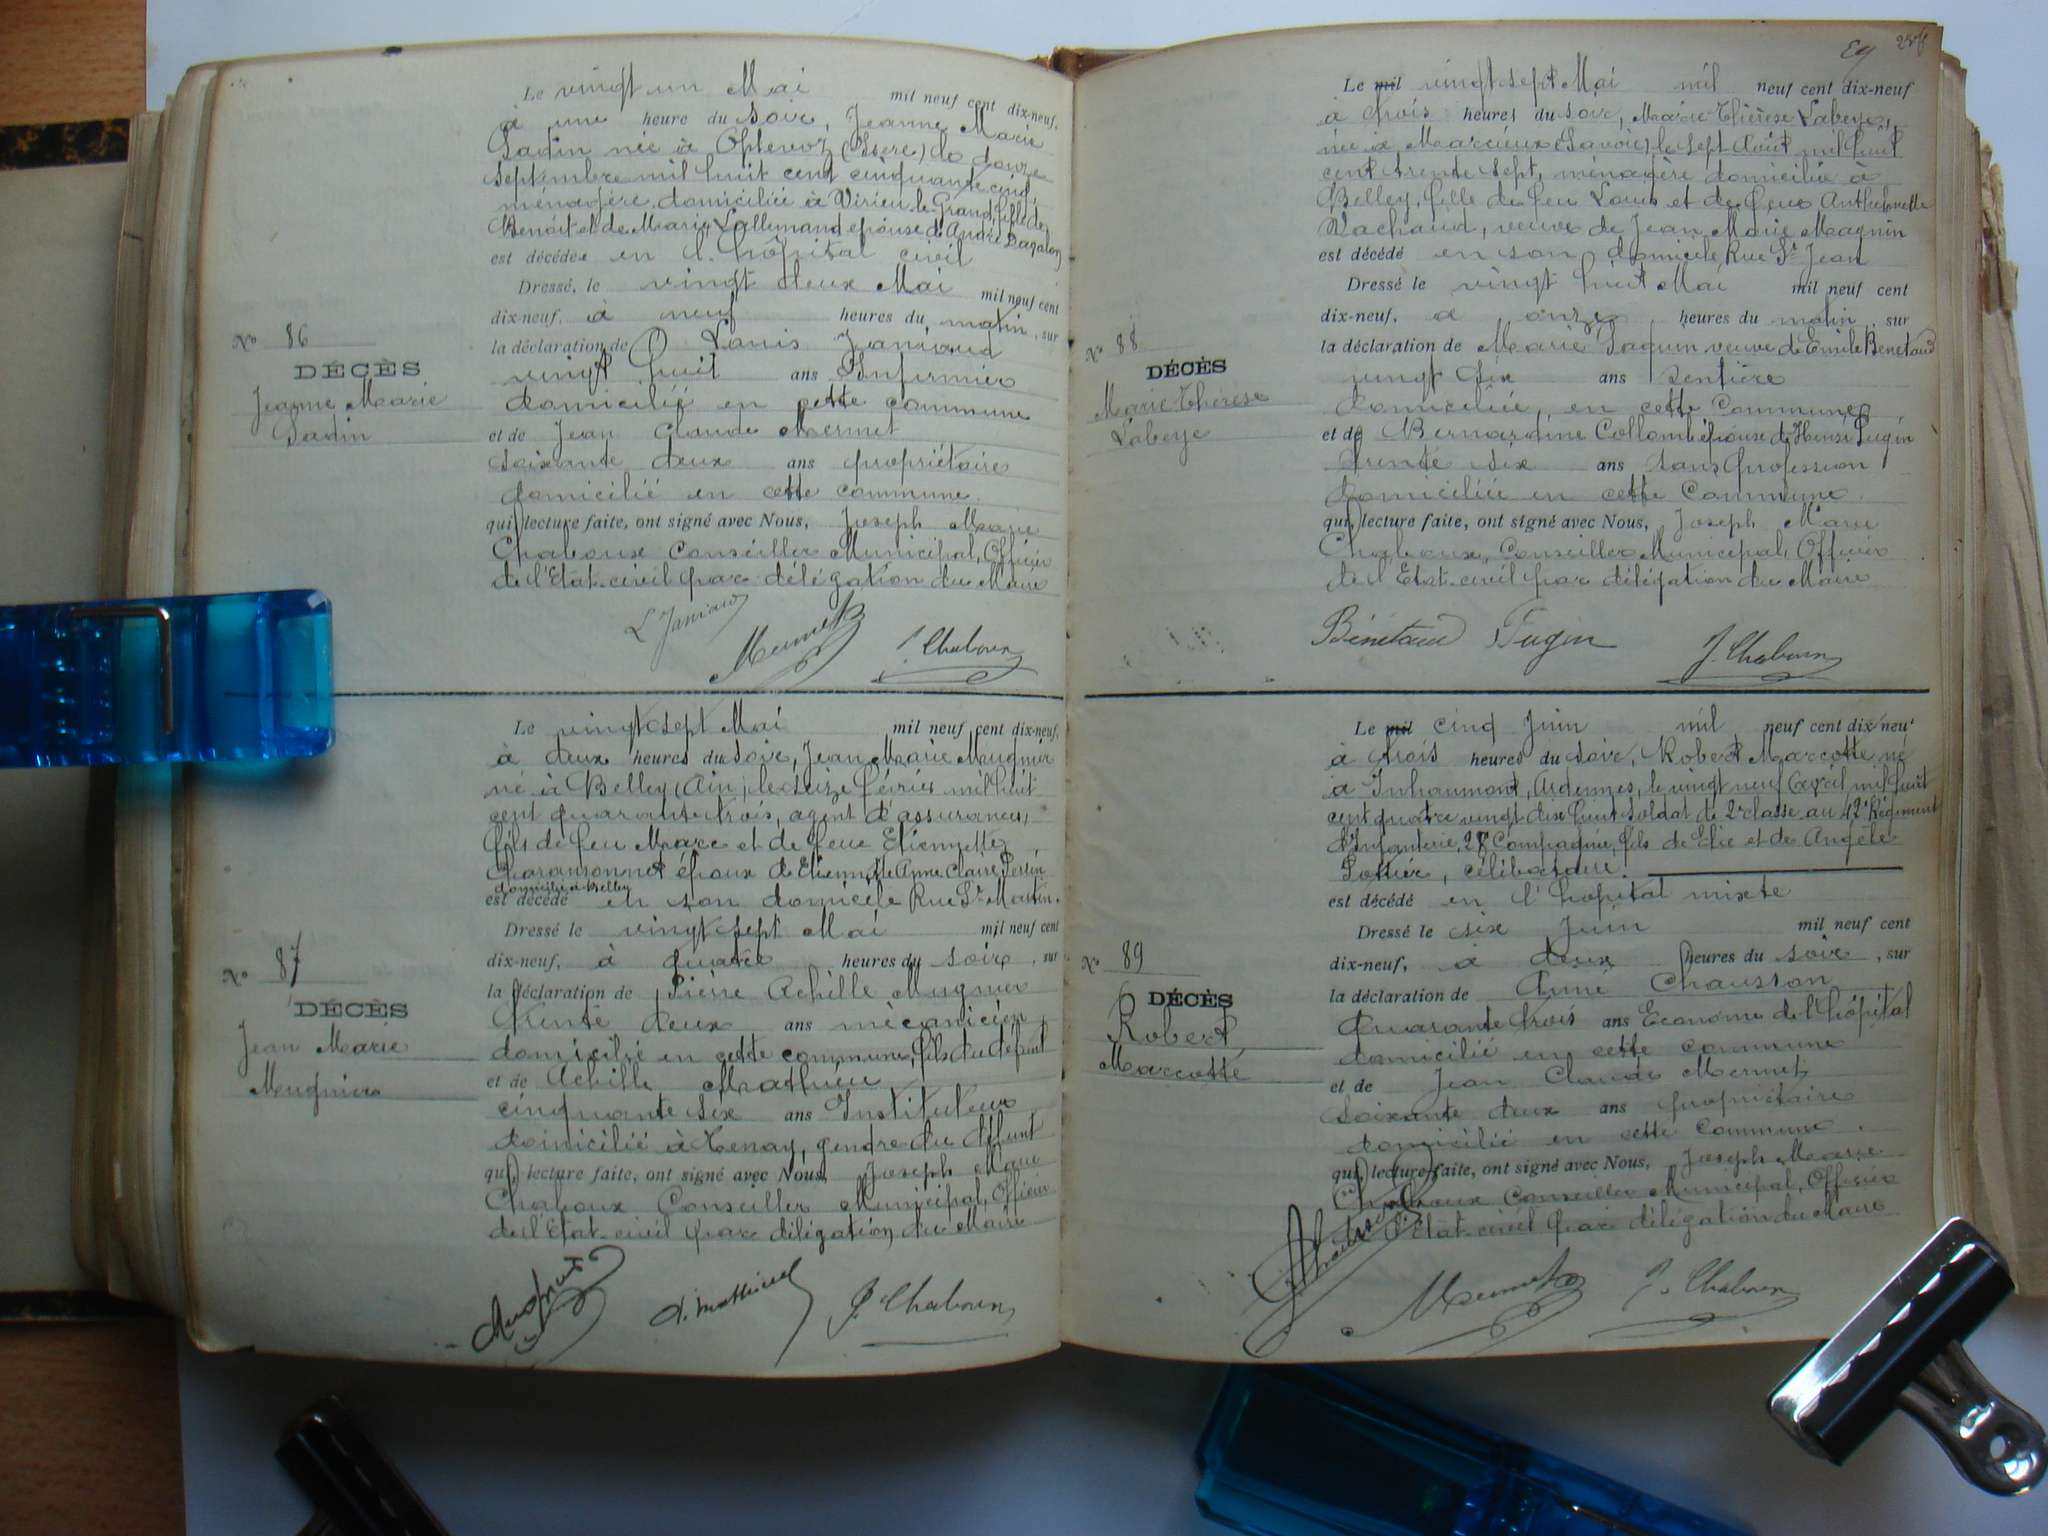 Le vingt un Mai mil neuf cent dix-neuf,
à une heure du soir, Jeanne Marie
Sadin née à Optevoz (Isère) le douze
septembre mil huit cent cinquante cinq
ménagère, domiciliée à Virieu-le-Grand, fille de
Benoît et de Marie Lallemand épouse d'André Dagalon
est décédée en l'hôpital civil
Dressé, le vingt deux Mai mil neuf cent
dix-neuf, à neuf heures du matin, sur
la déclaration de Louis Janiaud
vingt huit ans Infirmier
domicilié en cette commune
et de Jean Claude Mermet
soixante deux ans propriétaire
domicilié en cette commune.
qui, lecture faite, ont signé avec Nous, Joseph Marie
Chaboux Conseiller Municipal, Officier
de l'Etat-civil par délégation du Maire
L Janiaud Mermet J. Chaboux
No 86
DÉCÈS
Jeanne Marie
Sadin
Le vingt sept Mai mil neuf cent dix-neuf,
à deux heures du soir, Jean Marie Mugnier
né à Belley (Ain) le seize février mil huit
cent quarante trois, agent d'assurances,
fils de feu Marc et de feue Etiennette
époux de Anne Claire
domicilié à Belley
est décédé en son domicile Rue St Martin.
Dressé le vingt sept Mai mil neuf cent
dix-neuf, à quatre heures du soir, sur
la déclaration de Pierre Achille Mugnier
trente deux ans mécanicien
domicilié en cette commune, fils du défunt
et de Achille Mathieu
cinquante six ans Instituteur
domicilié à Tenay, gendre du défunt
qui, lecture faite, ont signé avec Nous, Joseph Marie
Chaboux Conseiller Municipal, Officier
de l'Etat-civil par délégation du Maire
Mugnier A. Mathieu J. Chaboux
No 87
DÉCÈS
Jean Marie
Mugnier
Eg
Le mil vingt sept Mai mil neuf cent dix-neuf
à trois heures du soir, Marie Thérèse Labeye,
née à Marcieux (Savoie) le sept Août mil huit
cent trente sept, ménagère domiciliée à
Belley, fille de feu Louis et de feue Anthelmette
Rachaud, veuve de Jean Marie Magnin
est décédé en son domicile Rue St Jean
Dressé le vingt huit Mai mil neuf cent
dix-neuf, à onze heures du matin, sur
la déclaration de Marie Paquen veuve de Emile Benetaud
vingt six ans rentière
domiciliée, en cette Commune
et de Bernardine Collomb épouse de Henri Pugin
trente six ans sans profession
domiciliée en cette Commune.
qui, lecture faite, ont signé avec Nous, Joseph Marie
Chaboux, Conseiller Municipal, Officier
de l'Etat-civil par délégation du Maire
Bénetaud Pugin J. Chaboux
No 88
DÉCÈS
Marie Thérèse
Labeye
Le mil cinq Juin mil neuf cent dix neuf
à trois heures du soir, Robert Marcotte né
à Inhaumont, Ardennes, le vingt neuf Avril mil huit
cent quatre vingt dix huit Soldat de 2e classe au 42e Régiment
d'Infanterie, 28e Compagnie, fils de Elie et de Angèle
Pottier, célibataire.
est décédé en l'hôpital mixte
Dressé le six Juin mil neuf cent
dix-neuf, à deux heures du soir, sur
la déclaration de Anne Chausson
Quarante trois ans Econome de l'hôpital
domicilié en cette commune
et de Jean Claude Mermet
Soixante deux ans propriétaire
domicilié en cette Commune.
qui, lecture faite, ont signé avec Nous, Joseph Marie
Chaboux Conseiller Municipal, Officier
de l'Etat-civil par délégation du Maire
Chausson Mermet J. Chaboux
No 89
DÉCÈS
Robert
Marcotte